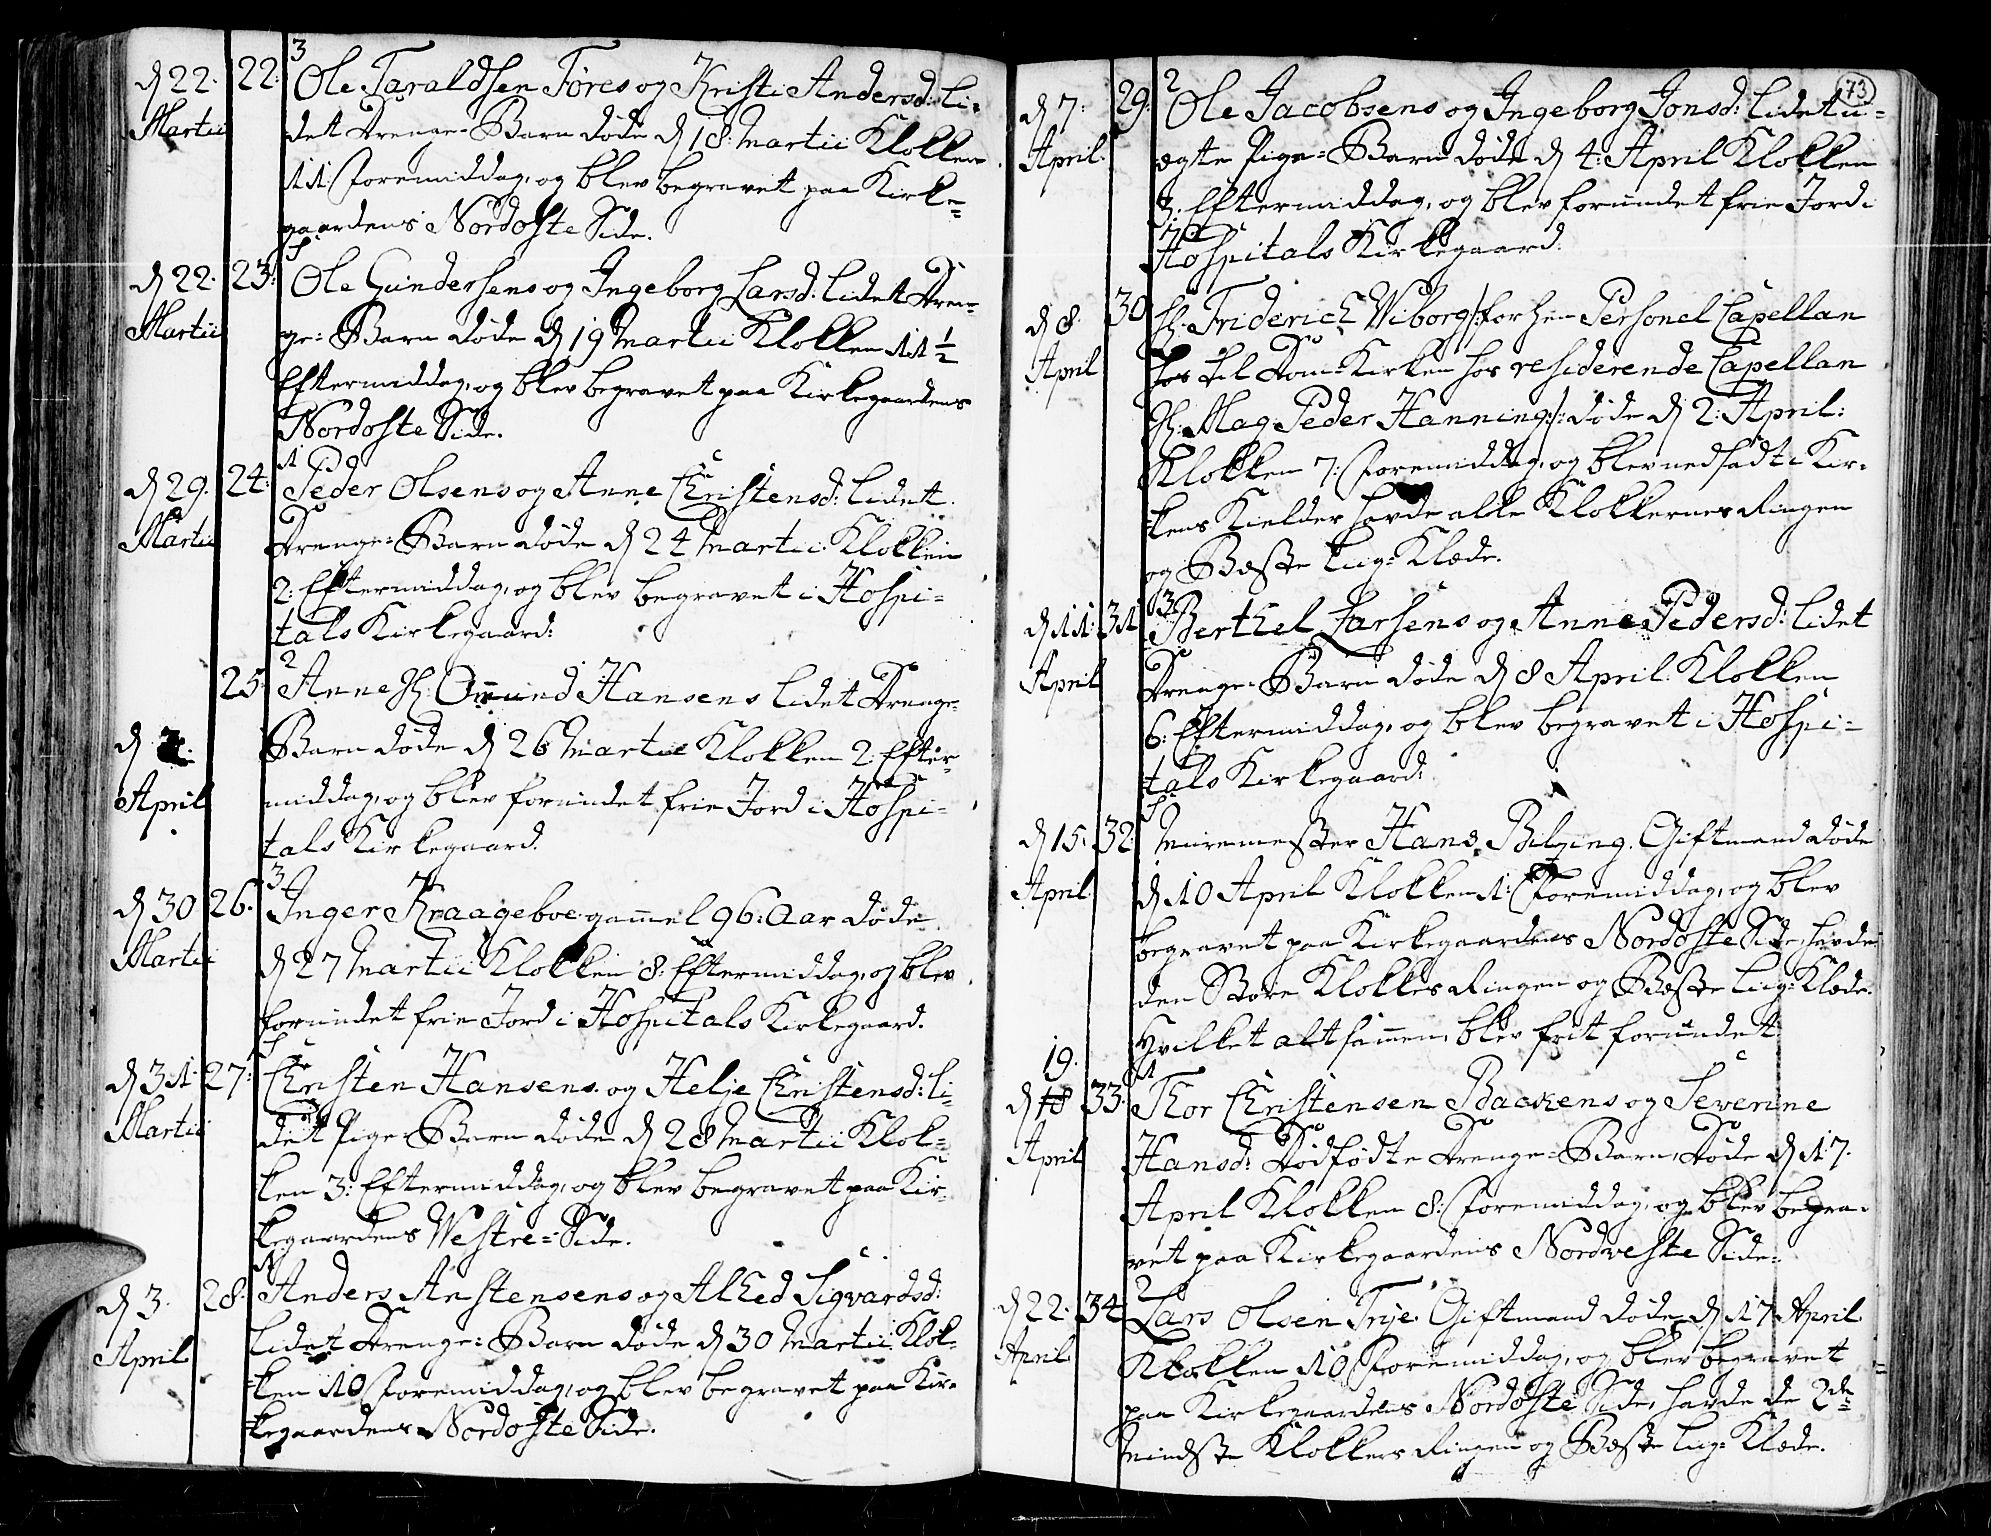 3
d 22. 22. Ole Taraldsen Föres og Kristi Andersd: Li-
Martii det Drenge-Barn döde d 18 Martii Klokken
11 Foremiddag, og blev begravet paa Kirke-
gaardens Nordoste Side.
d 22. 23. Ole Gundersens og Ingeborg Larsd: lidet Dren-
Martii ge-Barn döde d 19 Martii Klokken 11 1/2
Eftermiddag, og blev begravet paa Kirkegaardens
Nordoste Side.
1
d 29. 24. Peder Olsens og Anne Christensd: lidet
Martii Drenge-Barn döde d 24 Martii Klokken
2: Eftermiddag, og blev begravet i Hospi-
tals Kirkegaard:
2
25. Anne Sl. Omund Hansens lidet Drenge-
d Barn döde d 26 Martii Klokken 2: Efter-
April middag, og blev forundet frie Jord i Hospi-
tals Kirkegaard.
3
d 30 26. Inger Kraageboe gammel 96: Aar döde
Martii d 27 Martii Klokken 8: Eftermiddag, og blev
forundet frie Jord i Hospitals Kirkegaard.
d 31. 27: Christen Hansens og Helje Christensd: li-
Martii det Pige-Barn döde d 28 Martii Klok-
ken 3: Eftermiddag, og blev begravet paa Kir-
kegaardens Westre-Side.
d 3. 28. Anders Anstensens og Alhed Sigvardsd:
April lidet Drenge-Barn döde d 30 Martii Klok-
ken 10 Foremiddag, og blev begravet paa Kir-
kegaardens Nordoste Side.
73
2
d 7: 29. Ole Jacobsens og Ingeborg Jonsd: lidet u-
April. ægte Pige-Barn döde d 4: April Klokken
3: Eftermiddag, og blev forundet frie Jord i
Hospitals Kirkegaard.
d 8. 30 Hr. Friderich Wiborg /: forhen Personel Capellan
April til Dom-Kirken hos residerende Capellan
Hr. Mag. Peder Hanning :/ döde d 2: April:
Klokken 7: Foremiddag, og blev nedsadt i Kir-
kens Kielder havde alle Klokkernes Ringen
og Beste Liig-Klæde.
3
d 11: 31 Berthel Larsens og Anne Pedersd: lidet
April Drenge-Barn döde d 8 April Klokken
6: Eftermiddag, og blev begravet i Hospi-
tals Kirkegaard:
d 15. 32. Muremester Hans Bilzing. Giftmand döde
April d 10 April Klokken 1: Foremiddag, og blev
begravet paa Kirkegaardens Nordoste Side, havde
den Store Klokkes Ringen og Beste Liig-Klæde.
Hvilket altsammen blev frit forundet
19. 1
d 18 33. Thor Christensen Baakens og Severine
April Hansd: Dödfödte Drenge-Barn, döde d 17.
April Klokken 8: Foremiddag, og blev begra-
vet paa Kirkegaardens Nordveste Side.
2
d 22. 34 Lars Olsen Trye. Giftmand döde d 17 April
April Klokken 10 Foremiddag, og blev begravet
paa Kirkegaardens Nordoste Side, havde de 2de
mindste Klokkers Ringen og Beste Liig-Klæde.